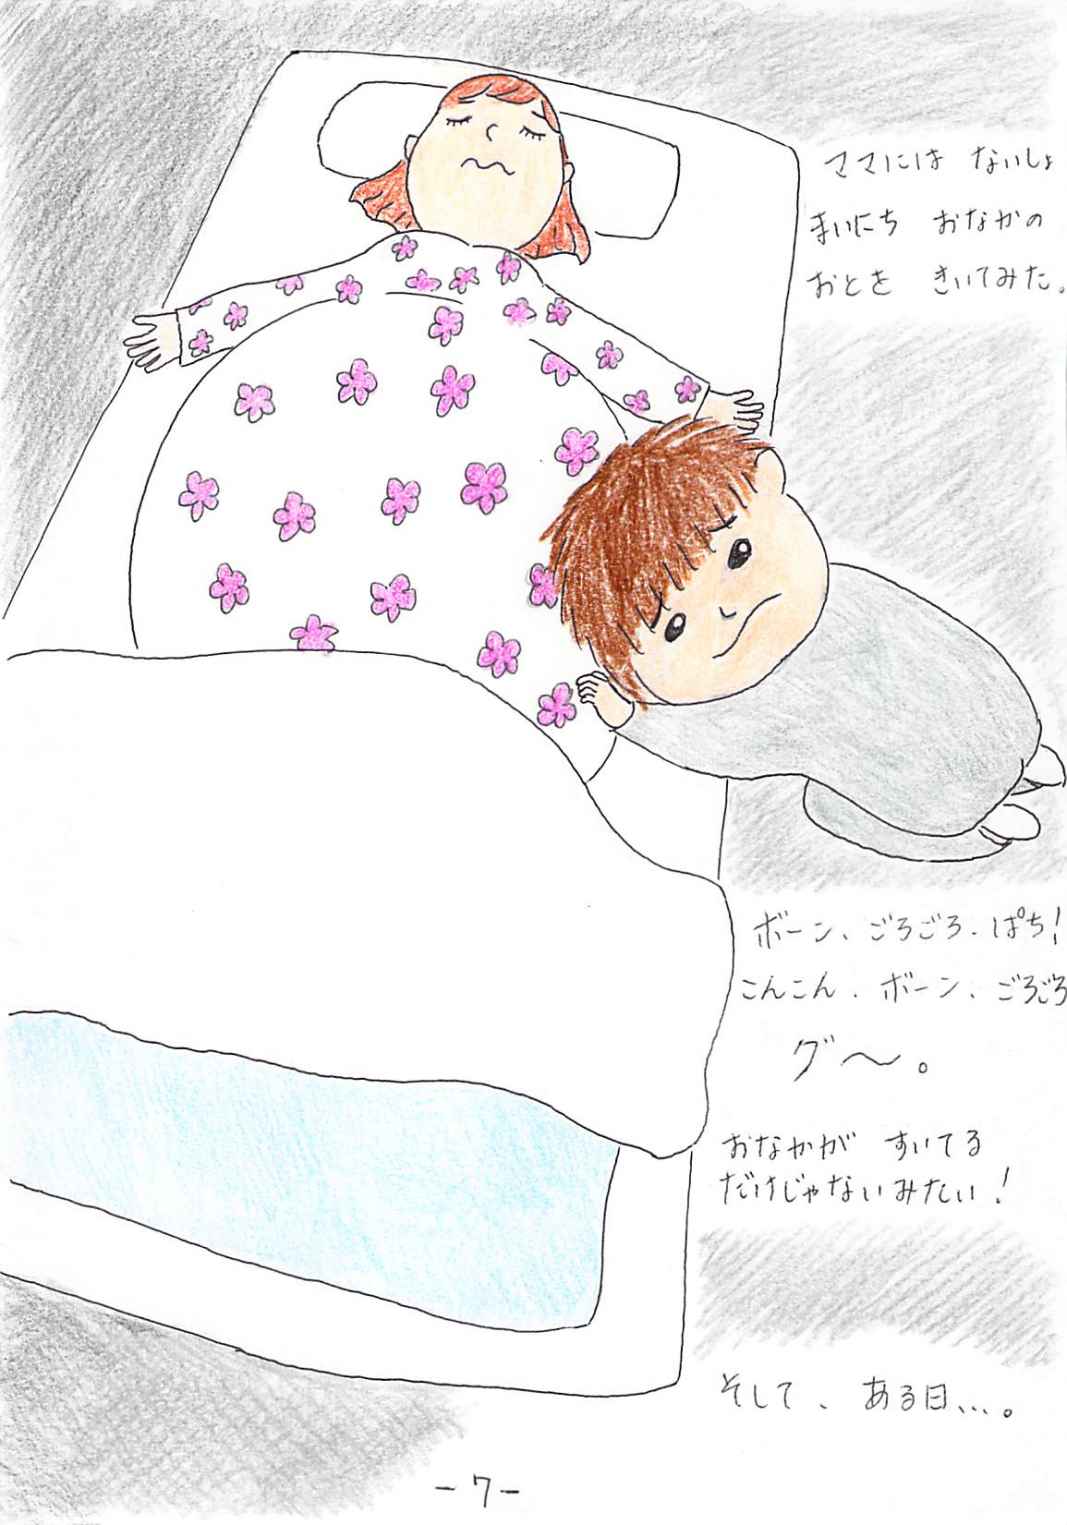 ママには ないしょ
まいにち おなかの
おとを きいてみた。
ボーン、ごろごろ、ぱち!
こんこん、ボーン、ごろごろ
グ〜。
おなかが すいてる
だけじゃないみたい!
そして、ある日…。
-7-